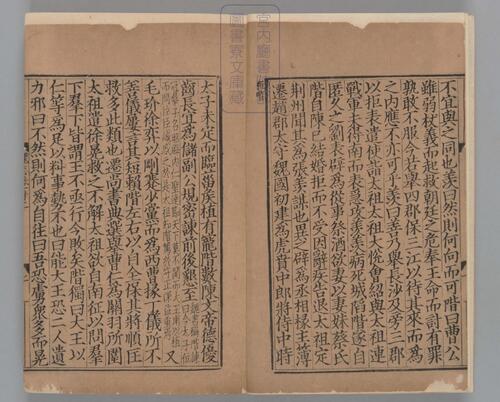 不宜與之同也羨曰然則何向而可階曰曹公
雖弱杖義而起救朝廷之危奉王命而討有罪
孰敢不服今若舉四郡保三江以待其來而為
之內應不亦可乎羨曰善乃舉長沙及旁三郡
以拒表遣使詣太祖太祖大悅會紹與太祖連
戰軍未得南而表急攻羨羨病死城陷階遂自
匿久之劉表辟為從事祭酒欲妻以妻妹蔡氏
階自陳已結婚拒而不受因辭疾告退太祖定
荊州聞其為張羨謀也異之辟為丞相掾主簿
遷趙郡太守魏國初建為虎賁中郎將侍中時
宮內廳書陵部
圖書寮文庫藏
太子未定而臨菑侯植有寵階數陳文帝德優
齒長宜為儲副公規密諫前後懇至
又
毛玠徐奕以剛蹇少黨而為西曹掾丁儀所不
善儀屢言其短賴階左右以自全保其將順匡
救多此類也遷尚書典選舉曹仁為關羽所圍
太祖遣徐晃救之不解太祖欲自南征以問羣
下羣下皆謂王不亟行今敗矣階獨曰大王以
仁等為足以料事勢不也曰能大王恐二人遺
力邪曰不然則何為自往曰吾恐虜衆多而晃